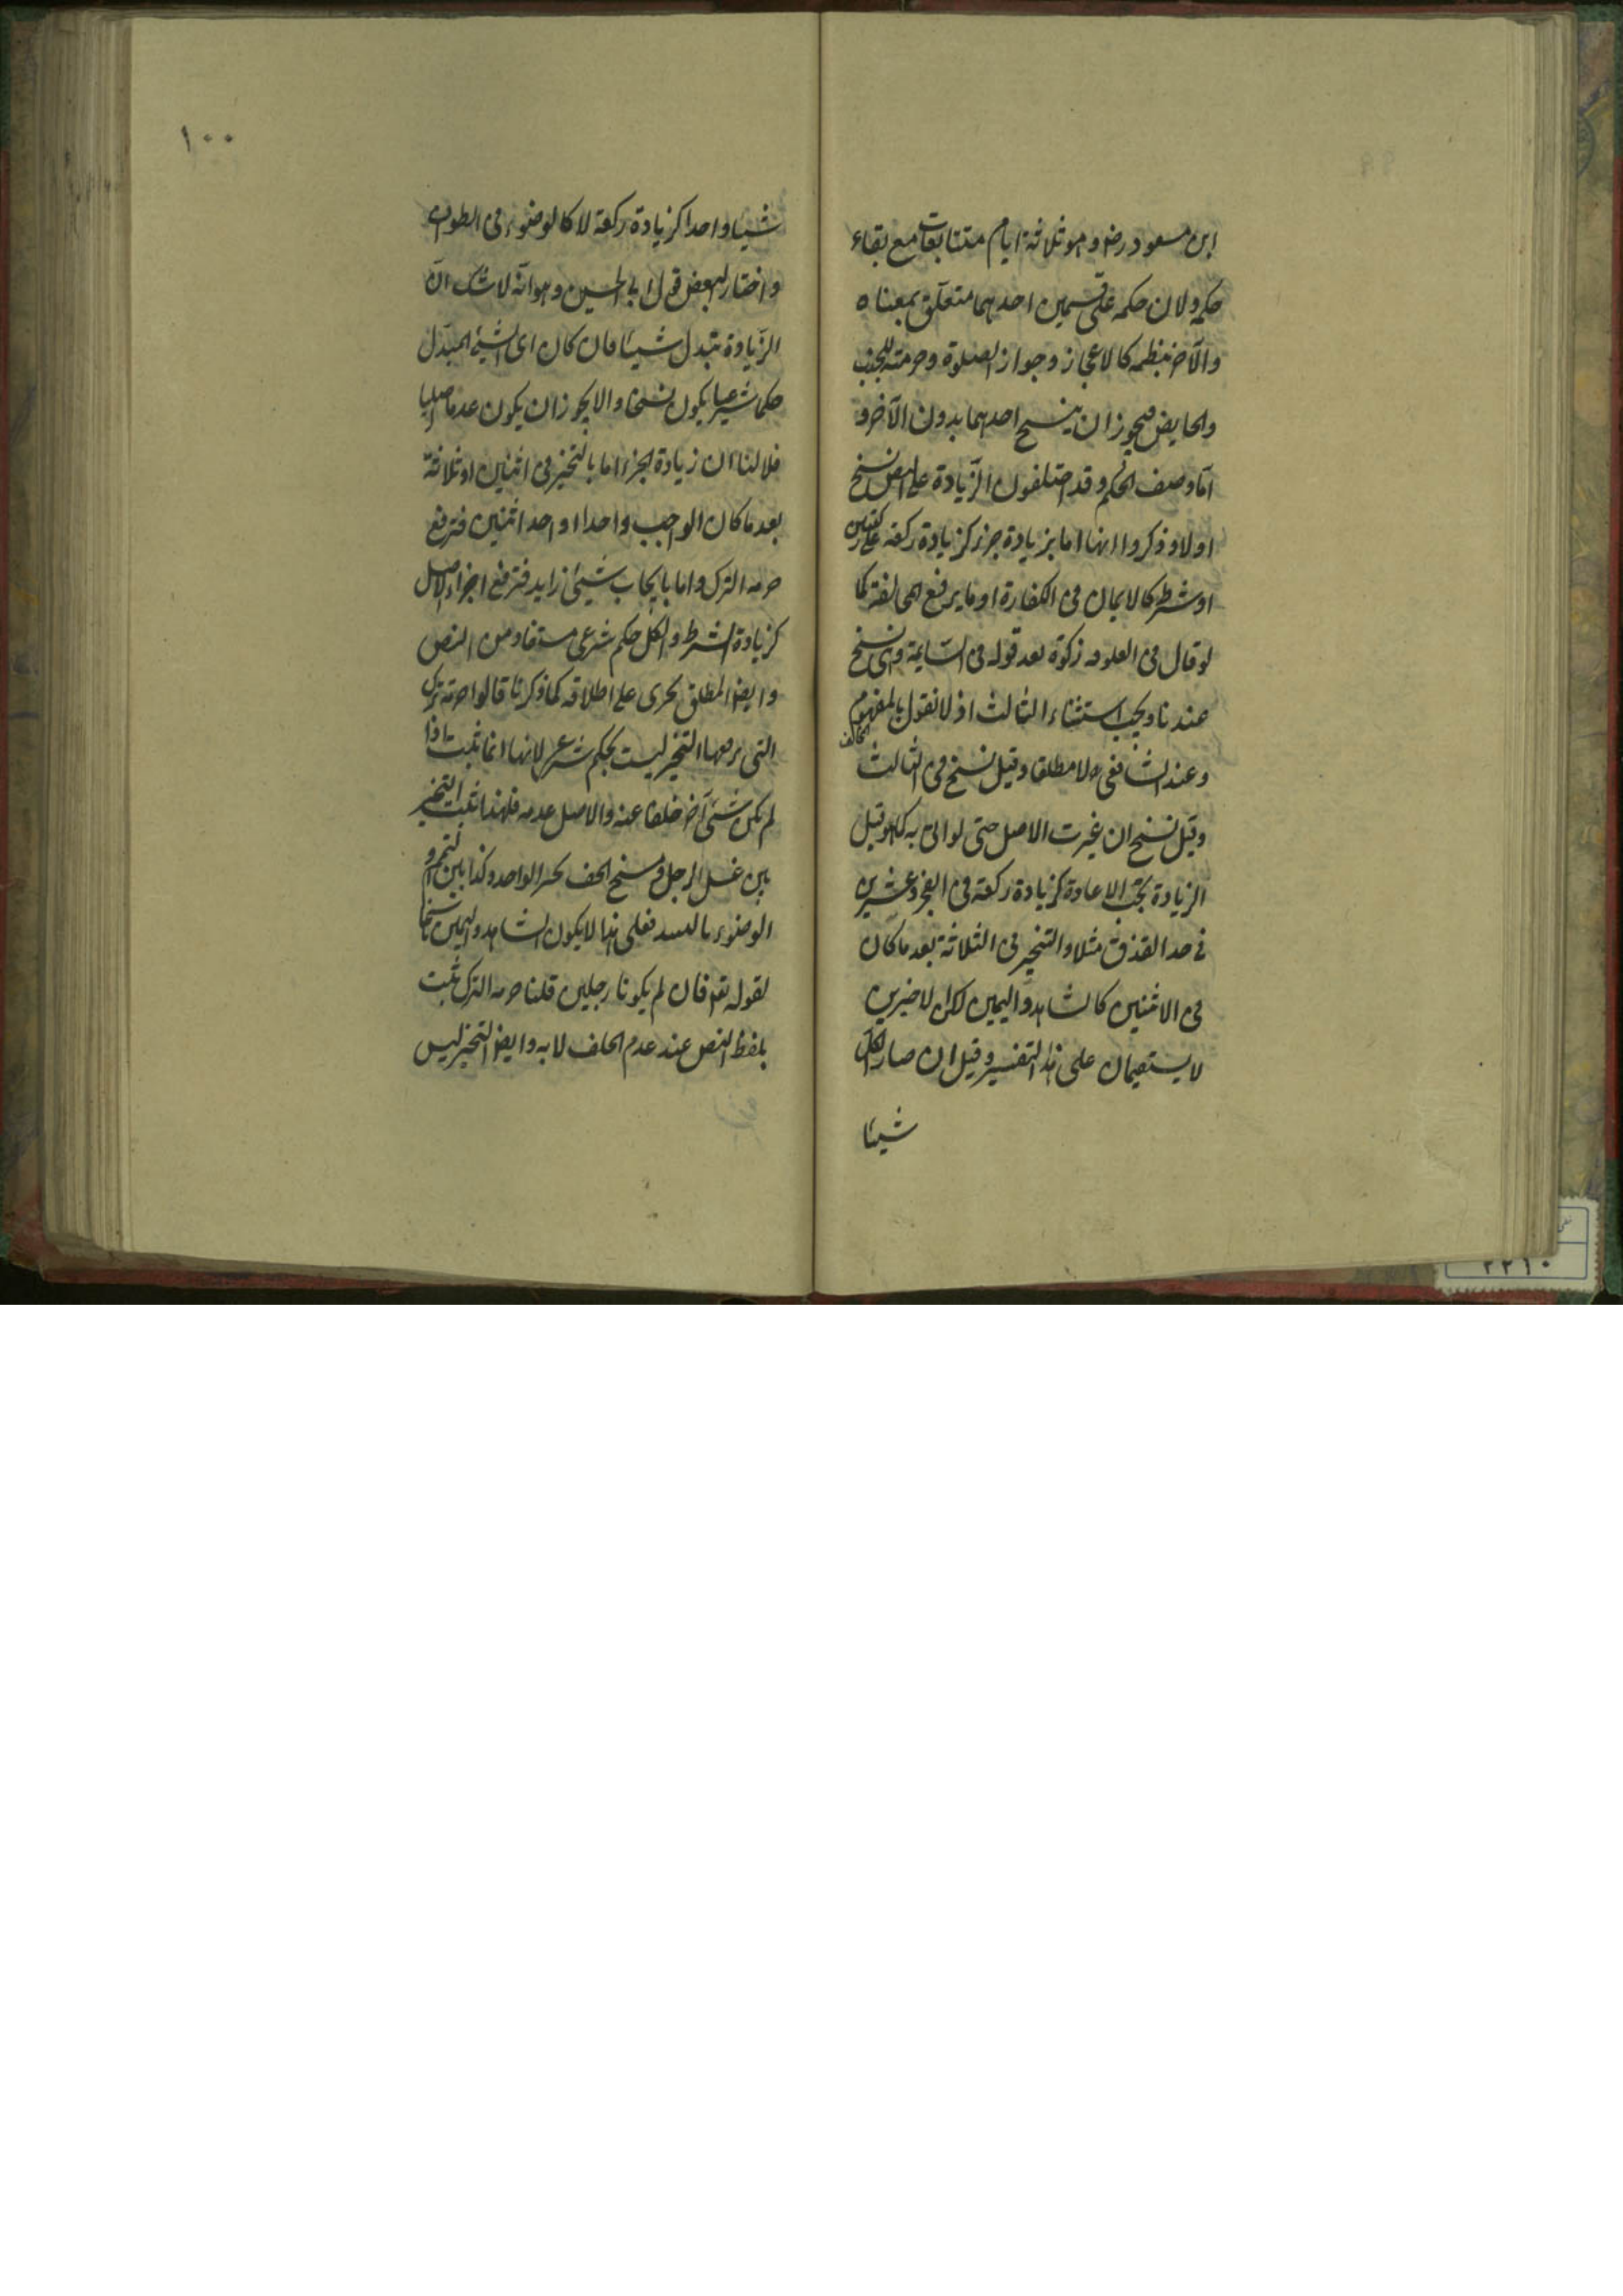 ابن مسعود رضه وهو ثلاثة ايام متتابعات مع بقاء
حكمه ولان حكمه على قسمين احدهما متعلق بمعناه
والآخر بنظمه كالاعجاز وجواز الصلوة وحرمته للجنب
والحايض فيجوز ان ينسخ احدهما بدون الآخر و
اما وصف الحكم وقد اختلفوا ان الزيادة على النص نسخ
اولا وذكروا انها اما بزيادة جزء كزيادة ركعة على ركعتين
او شرط كالايمان فى الكفارة او ما يرفع المخالفة كما
لو قال فى العلوفه زكوة بعد قوله فى السايمة وهى نسخ
عندنا ويجب استثناء الثالث اذ لا نقول بالمفهوم المخالف
وعند الشافعى ره لا مطلقا وقيل نسخ فى الثالث
وقيل نسخ ان غيرت الاصل حتى لو اتى به كما هو قبل
الزيادة تجب الاعادة كزيادة ركعة فى الفجر وعشرين
فى حد القذف مثلا والتخيير فى الثلاثة بعد ما كان
فى الاثنين كالشاهد واليمين لكن الاخيرين
لا يستقيمان على هذا التفسير وقيل ان صار الكل
شيئا
١٠٠
شيئا واحدا كزيادة ركعة لا كالوضوء فى الطواف
واختار البعض قول ابى الحسين وهو انه لا شك ان
الزيادة تبدل شيئا فان كان اى الشيء المبدل
حكما شرعيا يكون نسخا والا يجوز ان يكون عدما اصليا
فلا لنا ان زيادة الجزء اما بالتخيير فى اثنين او ثلاثة
بعد ما كان الواجب واحدا او احد اثنين فترفع
حرمه الترك واما بايجاب شيئ زايد فترفع اجزاء الاصل
كزيادة الشرط والكل حكم شرعى مستفاد من النص
وايضا المطلق يجرى على اطلاقه كما ذكرنا قالوا حرمة الترك
التى يرفعها التخيير ليست بحكم شرعى لانها انما تثبت اذا
لم يكن شيئ آخر خلفا عنه والاصل عدمه فلهذا تثبت التخيير
بين غسل الرجل ومسح الخف بخبر الواحد وكذا بين التيمم و
الوضوء بالنبيذ فعلى هذا لا يكون الشاهد واليمين ناسخا
لقوله تعه فان لم يكونا رجلين قلنا حرمه الترك تثبت
بلفظ النص عند عدم الخلف لا به وايضا التخيير ليس